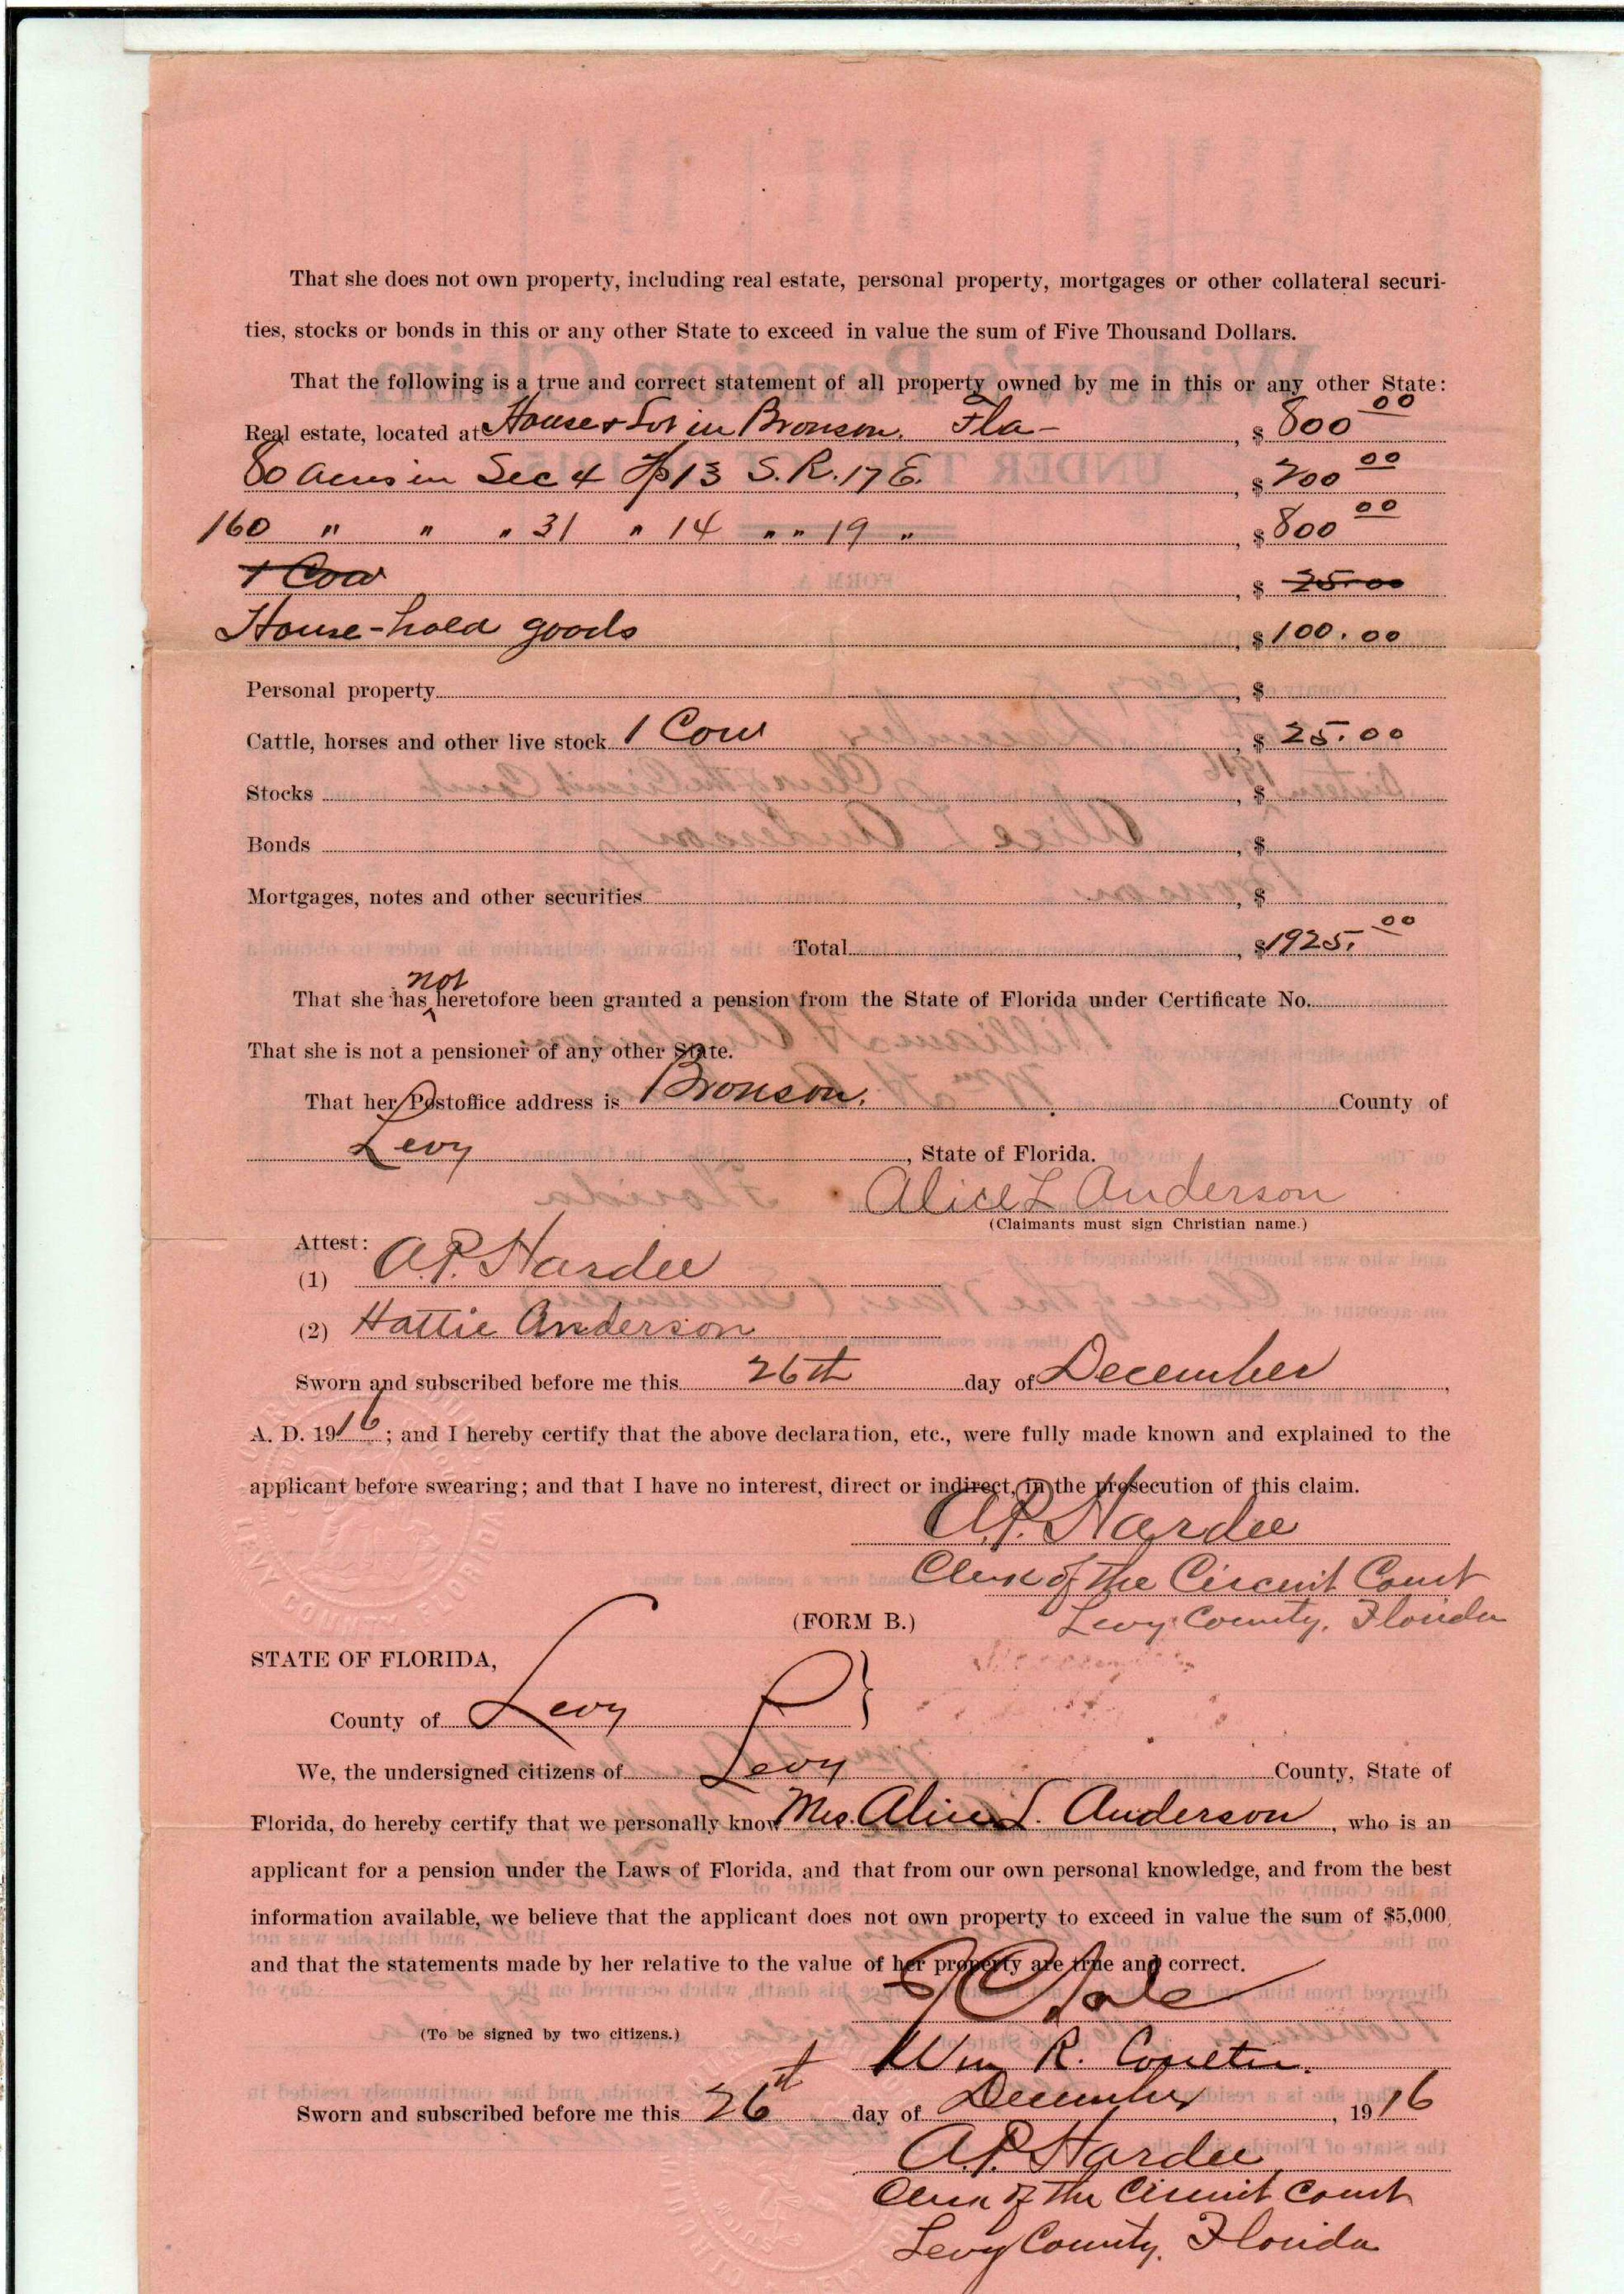 That she does not own property, including real estate, personal property, mortgages or other collateral securi-
ties, stocks or bonds in this or any other State to exceed in value the sum of Five Thousand Dollars.
That the following is a true and correct statement of all property owned by me in this or any other State:
Real estate, located at House & Lot in Bronson. Fla - , $ 800 00
80 acres in Sec 4 Tp 13 S. R. 17 E. , $ 200 00
160 " " " 31 " 14 " " 19 " , $ 800 00
1 Cow , $ 25.00
House-hold goods , $ 100.00
Personal property , $
Cattle, horses and other live stock 1 Cow , $ 25.00
Stocks , $
Bonds , $
Mortgages, notes and other securities , $
Total , $ 1925. 00
That she has not heretofore been granted a pension from the State of Florida under Certificate No.
That she is not a pensioner of any other State.
That her Postoffice address is Bronson. County of
Levy , State of Florida.
Alice L Anderson
(Claimants must sign Christian name.)
Attest:
(1) A.P. Hardee
(2) Hattie Anderson
Sworn and subscribed before me this 26th day of December ,
A. D. 1916 ; and I hereby certify that the above declaration, etc., were fully made known and explained to the
applicant before swearing; and that I have no interest, direct or indirect, in the prosecution of this claim.
A.P. Hardee
Clerk of the Circuit Court
Levy County, Florida
(FORM B.)
STATE OF FLORIDA,
County of Levy }
We, the undersigned citizens of Levy County, State of
Florida, do hereby certify that we personally know Mrs. Alice L. Anderson , who is an
applicant for a pension under the Laws of Florida, and that from our own personal knowledge, and from the best
information available, we believe that the applicant does not own property to exceed in value the sum of $5,000,
and that the statements made by her relative to the value of her property are true and correct.
(To be signed by two citizens.)
Wm R. Coulter.
Sworn and subscribed before me this 26th day of December , 1916
A.P. Hardee
Clerk of the Circuit Court
Levy County, Florida